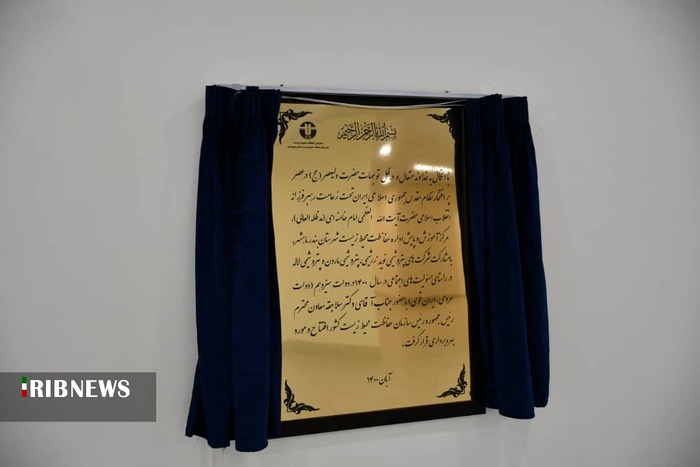 بسم الله الرحمن الرحیم
با اتکال به خداوند متعال و در ظل توجهات حضرت ولیعصر (عج) در عصر
پر افتخار نظام مقدس جمهوری اسلامی ایران تحت زعامت رهبر فرزانه
انقلاب اسلامی حضرت آیت الله العظمی امام خامنه ای (مدظله العالی)،
مرکز آموزش و پایش اداره حفاظت محیط زیست شهرستان بندر ماهشهر،
با مشارکت شرکت های پتروشیمی نوید زرشیمی، پتروشیمی مارون و پتروشیمی لاله
در راستای مسئولیت های اجتماعی در سال ۱۴۰۰ در دولت سیزدهم (دولت
مردمی، ایران قوی) با حضور جناب آقای دکتر سلاجقه معاون محترم
رئیس جمهور و رئیس سازمان حفاظت محیط زیست کشور افتتاح و مورد
بهره برداری قرار گرفت.
آبان ۱۴۰۰
IRIBNEWS